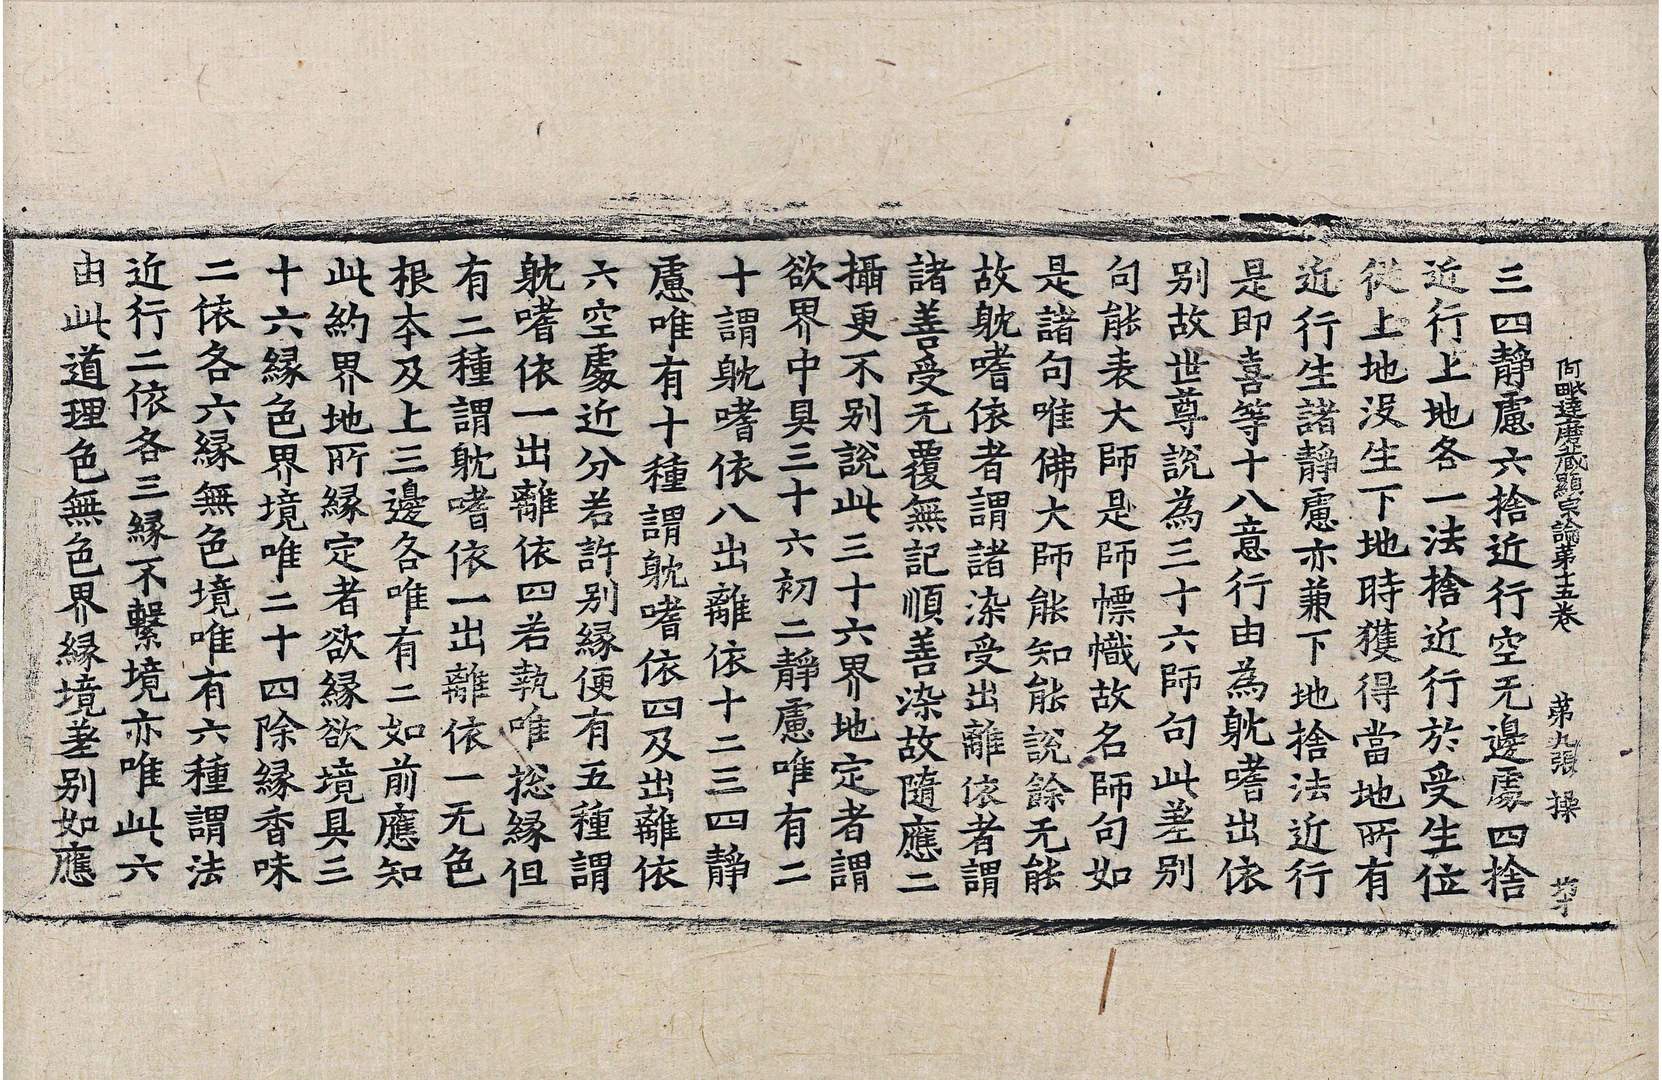 阿毗達磨藏顯宗論第十五卷 第九張 操
三四靜慮六捨近行空无邊處四捨
近行上地各一法捨近行於受生位
從上地沒生下地時獲得當地所有
近行生諸靜慮亦兼下地捨法近行
是即喜等十八意行由為躭嗜出依
别故世尊說為三十六師句此差别
句能表大師是師幖幟故名師句如
是諸句唯佛大師能知能說餘无能
故躭嗜依者謂諸染受出離依者謂
諸善受无覆無記順善染故隨應二
攝更不别說此三十六界地定者謂
欲界中具三十六初二靜慮唯有二
十謂躭嗜依八出離依十二三四靜
慮唯有十種謂躭嗜依四及出離依
六空處近分若許别緣便有五種謂
躭嗜依一出離依四若執唯揔緣但
有二種謂躭嗜依一出離依一无色
根本及上三邊各唯有二如前應知
此約界地所緣定者欲緣欲境具三
十六緣色界境唯二十四除緣香味
二依各六緣無色境唯有六種謂法
近行二依各三緣不繫境亦唯此六
由此道理色無色界緣境差别如應